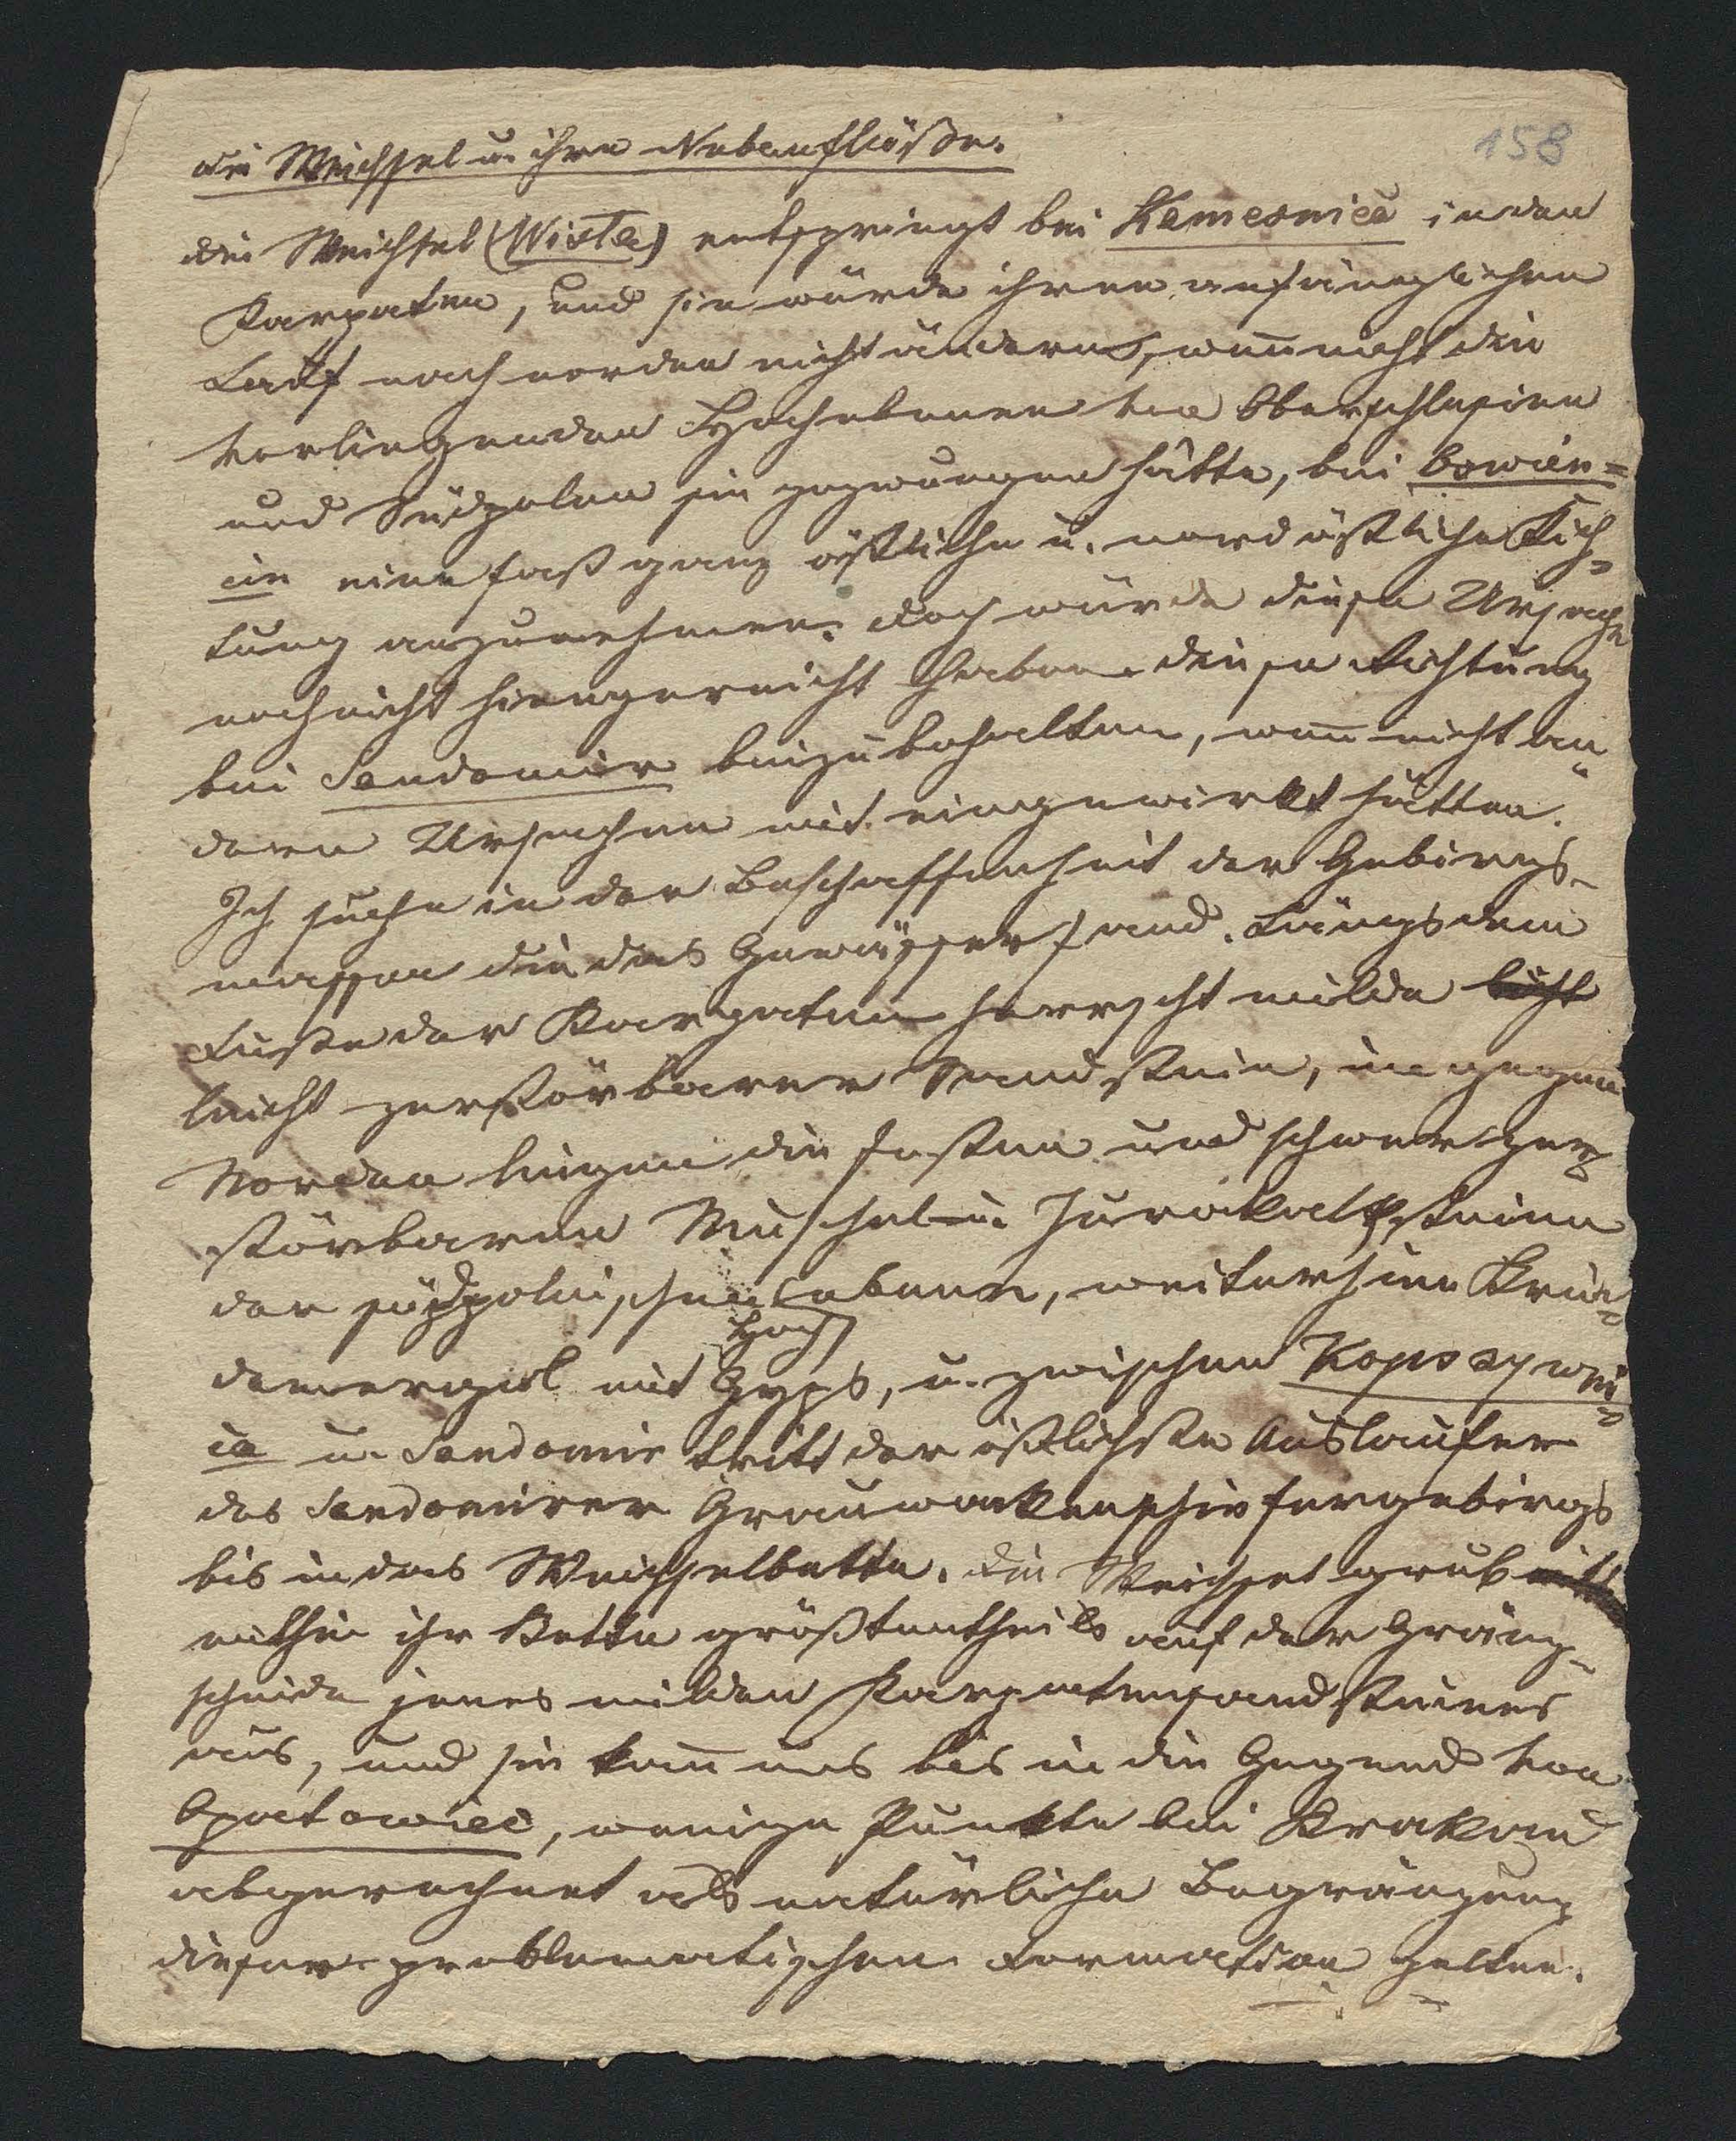 158
Die Weichsel u. ihre Nebenflüße.
Die Weichsel (Wisla) entspringt bei Kamesnica in den
Karpaten, und sie würde ihren anfänglichen
Lauf nach norden nicht ändern, weñ nicht die
vorliegenden Hochebenen von Oberschlesien
und Südpolen sie gezwungen hätte, bei Oswien=
cin eine fast ganz östliche u. nordöstliche Rich=
tung anzunehmen. Doch würde diese Ursache
noch nicht hingereicht haben diese Richtung
bei Sandomir beizubehalten, weñ nicht an=
dere Ursachen mit eingewirkt hätten.
Ich suche in der Beschaffenheit der Gebirgs-
massen die das Gewässer fand. Längs dem
Fuße der Karpaten herrscht milde leicht
leicht zerstörbarer Sandstein, in gegen
Norden liegen die festen und schwer zer=
störbaren Muschel- u. Jurakalksteine
der südpolnischen Hochebene, weiterhin Krei=
demergel mit Gyps, u. zwischen Koprzywni=
ca u. Sandomir tritt der östlichste Auslaufer
des Sandomirer Grauwackenschiefergebirgs
bis in das Weichselbette. Die Weichsel grub mith
mithin ihr Bette größtentheils auf der Gränz-
scheide jenes milden Karpatensandsteines
aus, und sie kañ uns bis in die Gegend von
Opatowiec, wenige Punkte bei Krakau
abgerechnet als natürliche Begränzung
dieser problematischen Formation gelten.